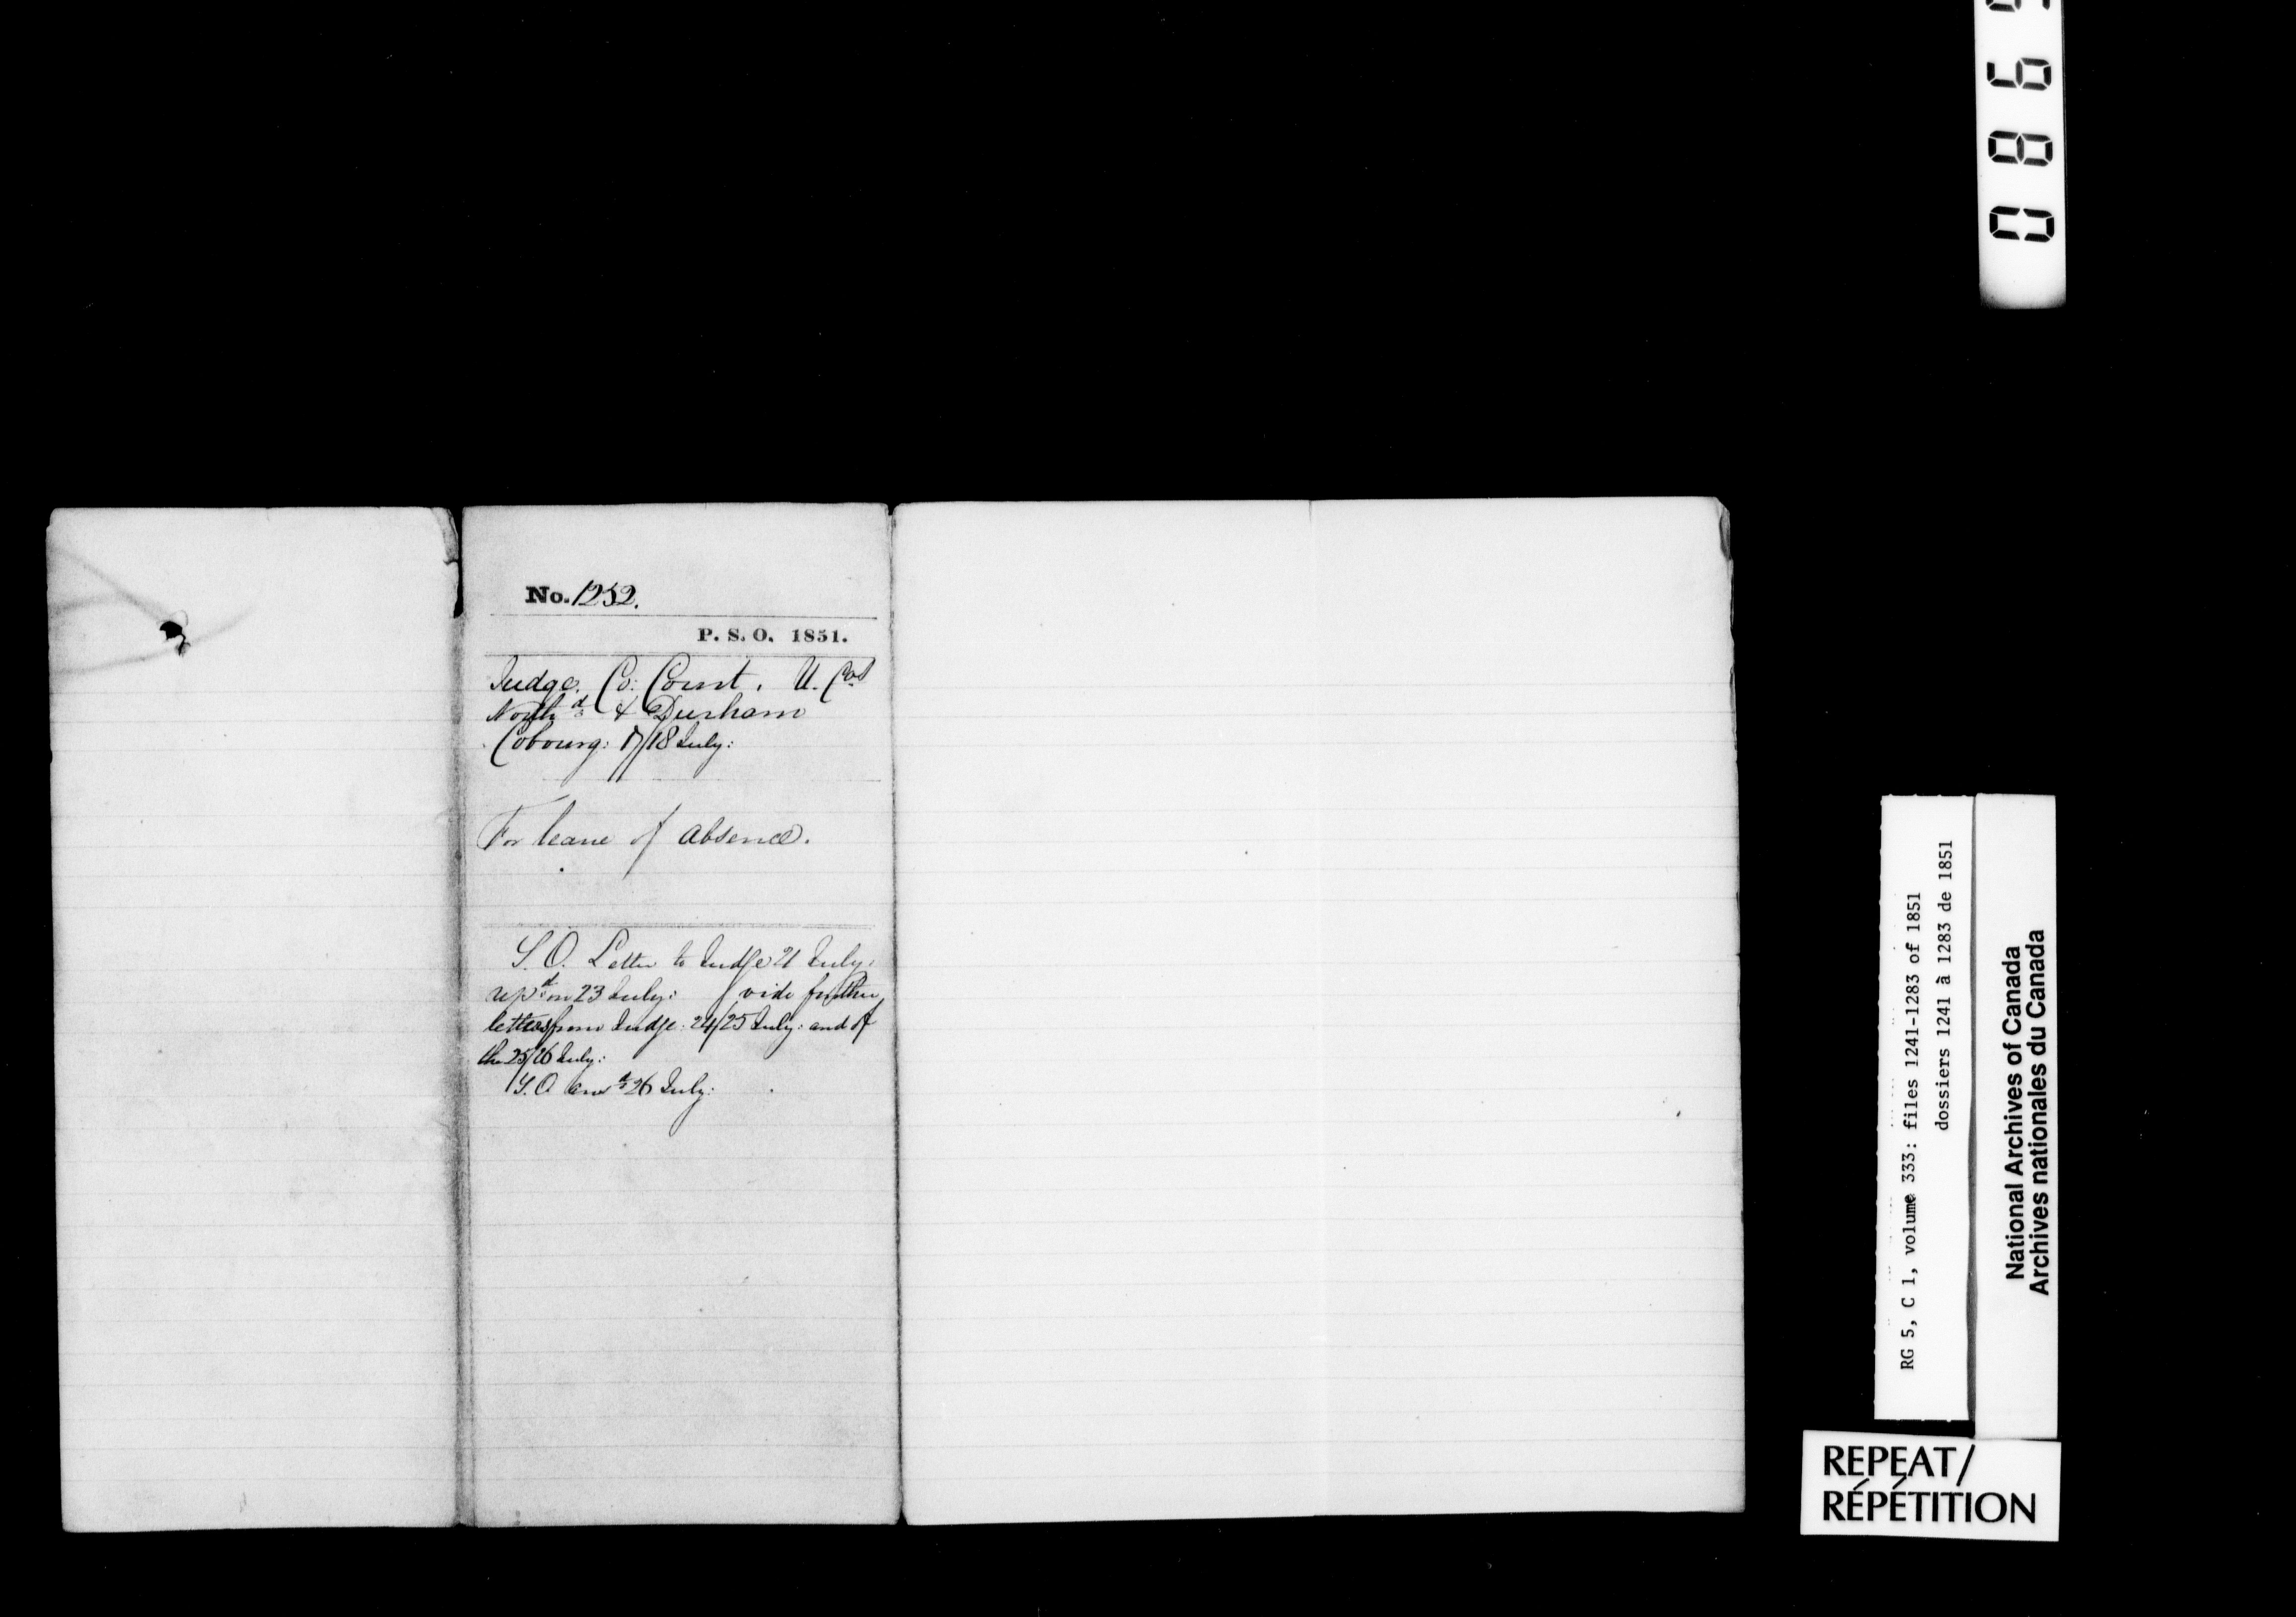 No. 1252.
P. S. O. 1851.
Judge. Co: Court. U. Cos
Northd & Durham
Cobourg: 17/18 July:
For leave of absence.
S. O. Letter to Judge 21 July.
repd on 23 July: vide further
letters from Judge: 24/25 July: and of
the 25/26 July:
S. O ansd 26 July:
0 8 6
RG 5, C 1, volume 333: files 1241-1283 of 1851
dossiers 1241 à 1283 de 1851
National Archives of Canada
Archives nationales du Canada
REPEAT/
RÉPÉTITION